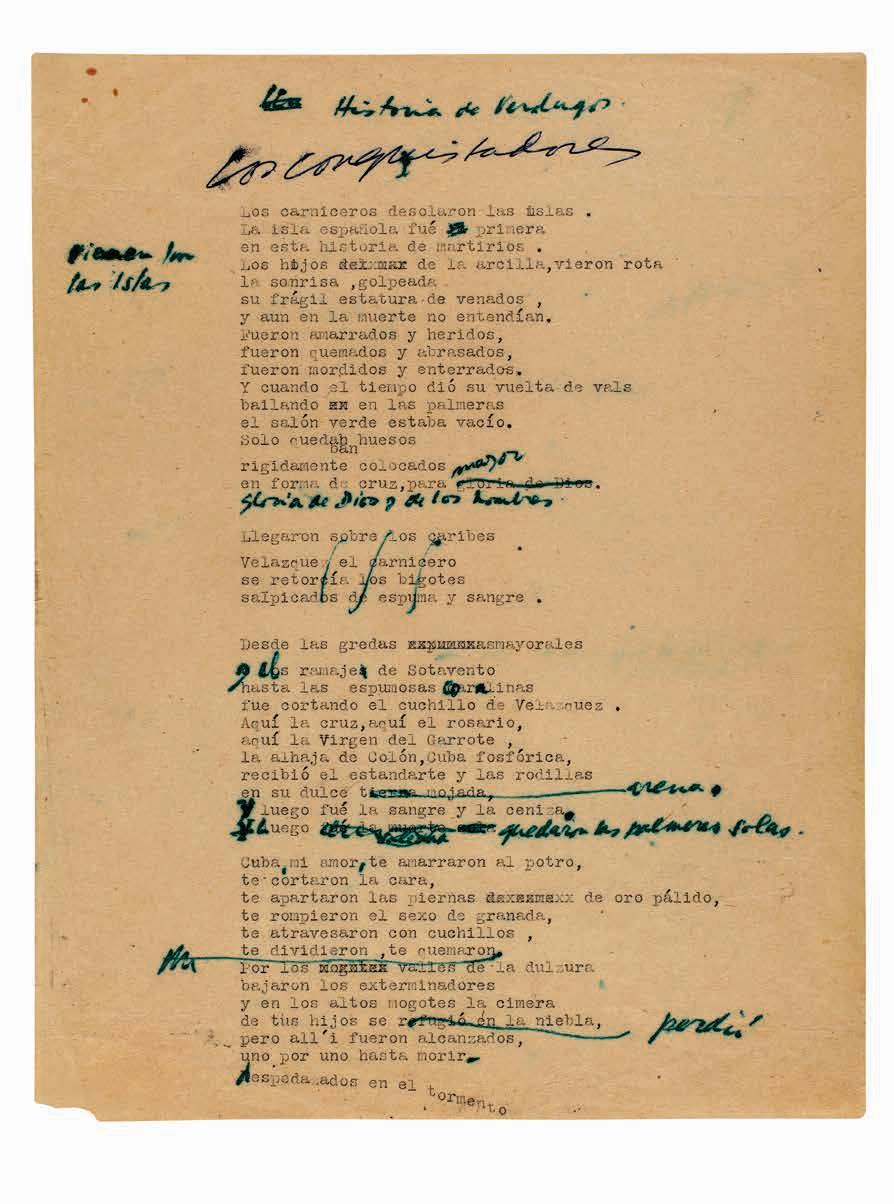 Historia de Verdugos.
Los Conquistadores
Los carniceros desolaron las islas .
La isla española fué primera
en esta historia de martirios .
Vienen por
las islas
Los hijos de la arcilla,vieron rota
la sonrisa ,golpeada
su frágil estatura de venados ,
y aun en la muerte no entendían.
Fueron amarrados y heridos,
fueron quemados y abrasados,
fueron mordidos y enterrados.
Y cuando el tiempo dió su vuelta de vals
bailando en las palmeras
el salón verde estaba vacío.
Solo quedaban huesos
rigidamente colocados
en forma de cruz,para mayor gloria de Dios.
gloria de Dios y de los hombres.
Llegaron sobre los caribes
Velazquez el carnicero
se retorcía los bigotes
salpicados de espuma y sangre .
Desde las gredas mayorales
y el ramaje de Sotavento
hasta las espumosas coralinas
fue cortando el cuchillo de Velazquez .
Aquí la cruz,aquí el rosario,
aquí la Virgen del Garrote ,
la alhaja de Colón,Cuba fosfórica,
recibió el estandarte y las rodillas
en su dulce tierra mojada, arena.
Y luego fué la sangre y la ceniza.
Y luego fué la muerte sola quedaron las palmeras solas.
Cuba, mi amor,te amarraron al potro,
te cortaron la cara,
te apartaron las piernas de oro pálido,
te rompieron el sexo de granada,
te atravesaron con cuchillos ,
te dividieron ,te quemaron.
Por los valles de la dulzura
bajaron los exterminadores
y en los altos mogotes la cimera
de tus hijos se refugió en la niebla, perdió
pero all´i fueron alcanzados,
uno por uno hasta morir
despedazados en el tormento